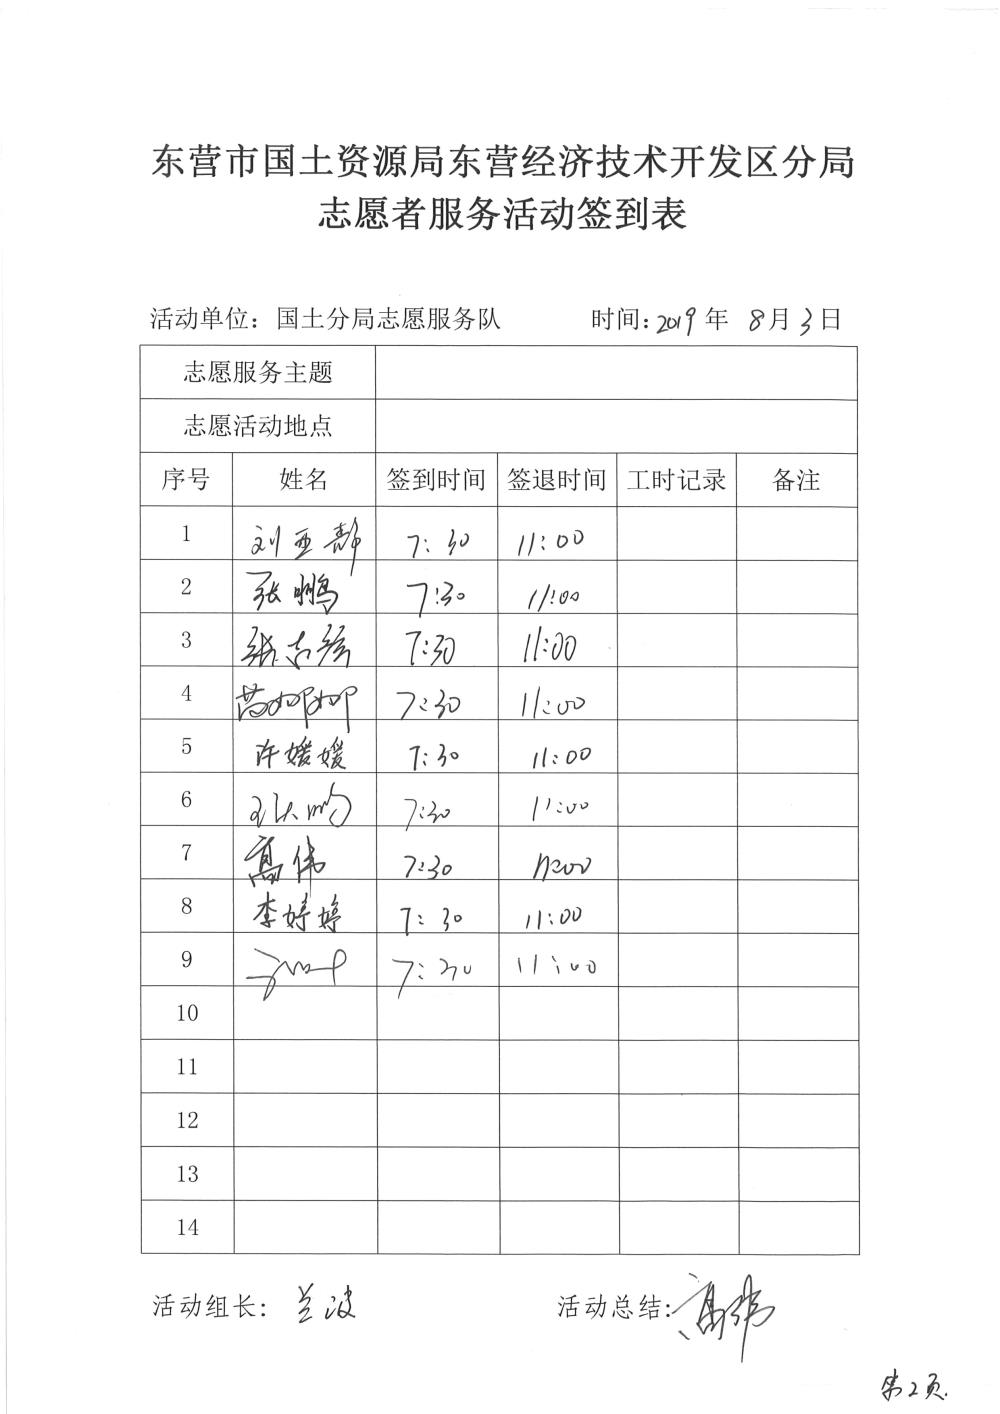 东营市国土资源局东营经济技术开发区分局
志愿者服务活动签到表
活动单位：国土分局志愿服务队 时间：2019年 8月3日
志愿服务主题
志愿活动地点
序号 姓名 签到时间 签退时间 工时记录 备注
1 刘亚静 7:30 11:00
2 张鹏 7:30 11:00
3 张志强 7:30 11:00
4 7:30 11:00
5 许媛媛 7:30 11:00
6 7:30 11:00
7 高伟 7:30 11:00
8 李婷婷 7:30 11:00
9 7:30 11:00
10
11
12
13
14
活动组长：兰波 活动总结：高伟
第2页.